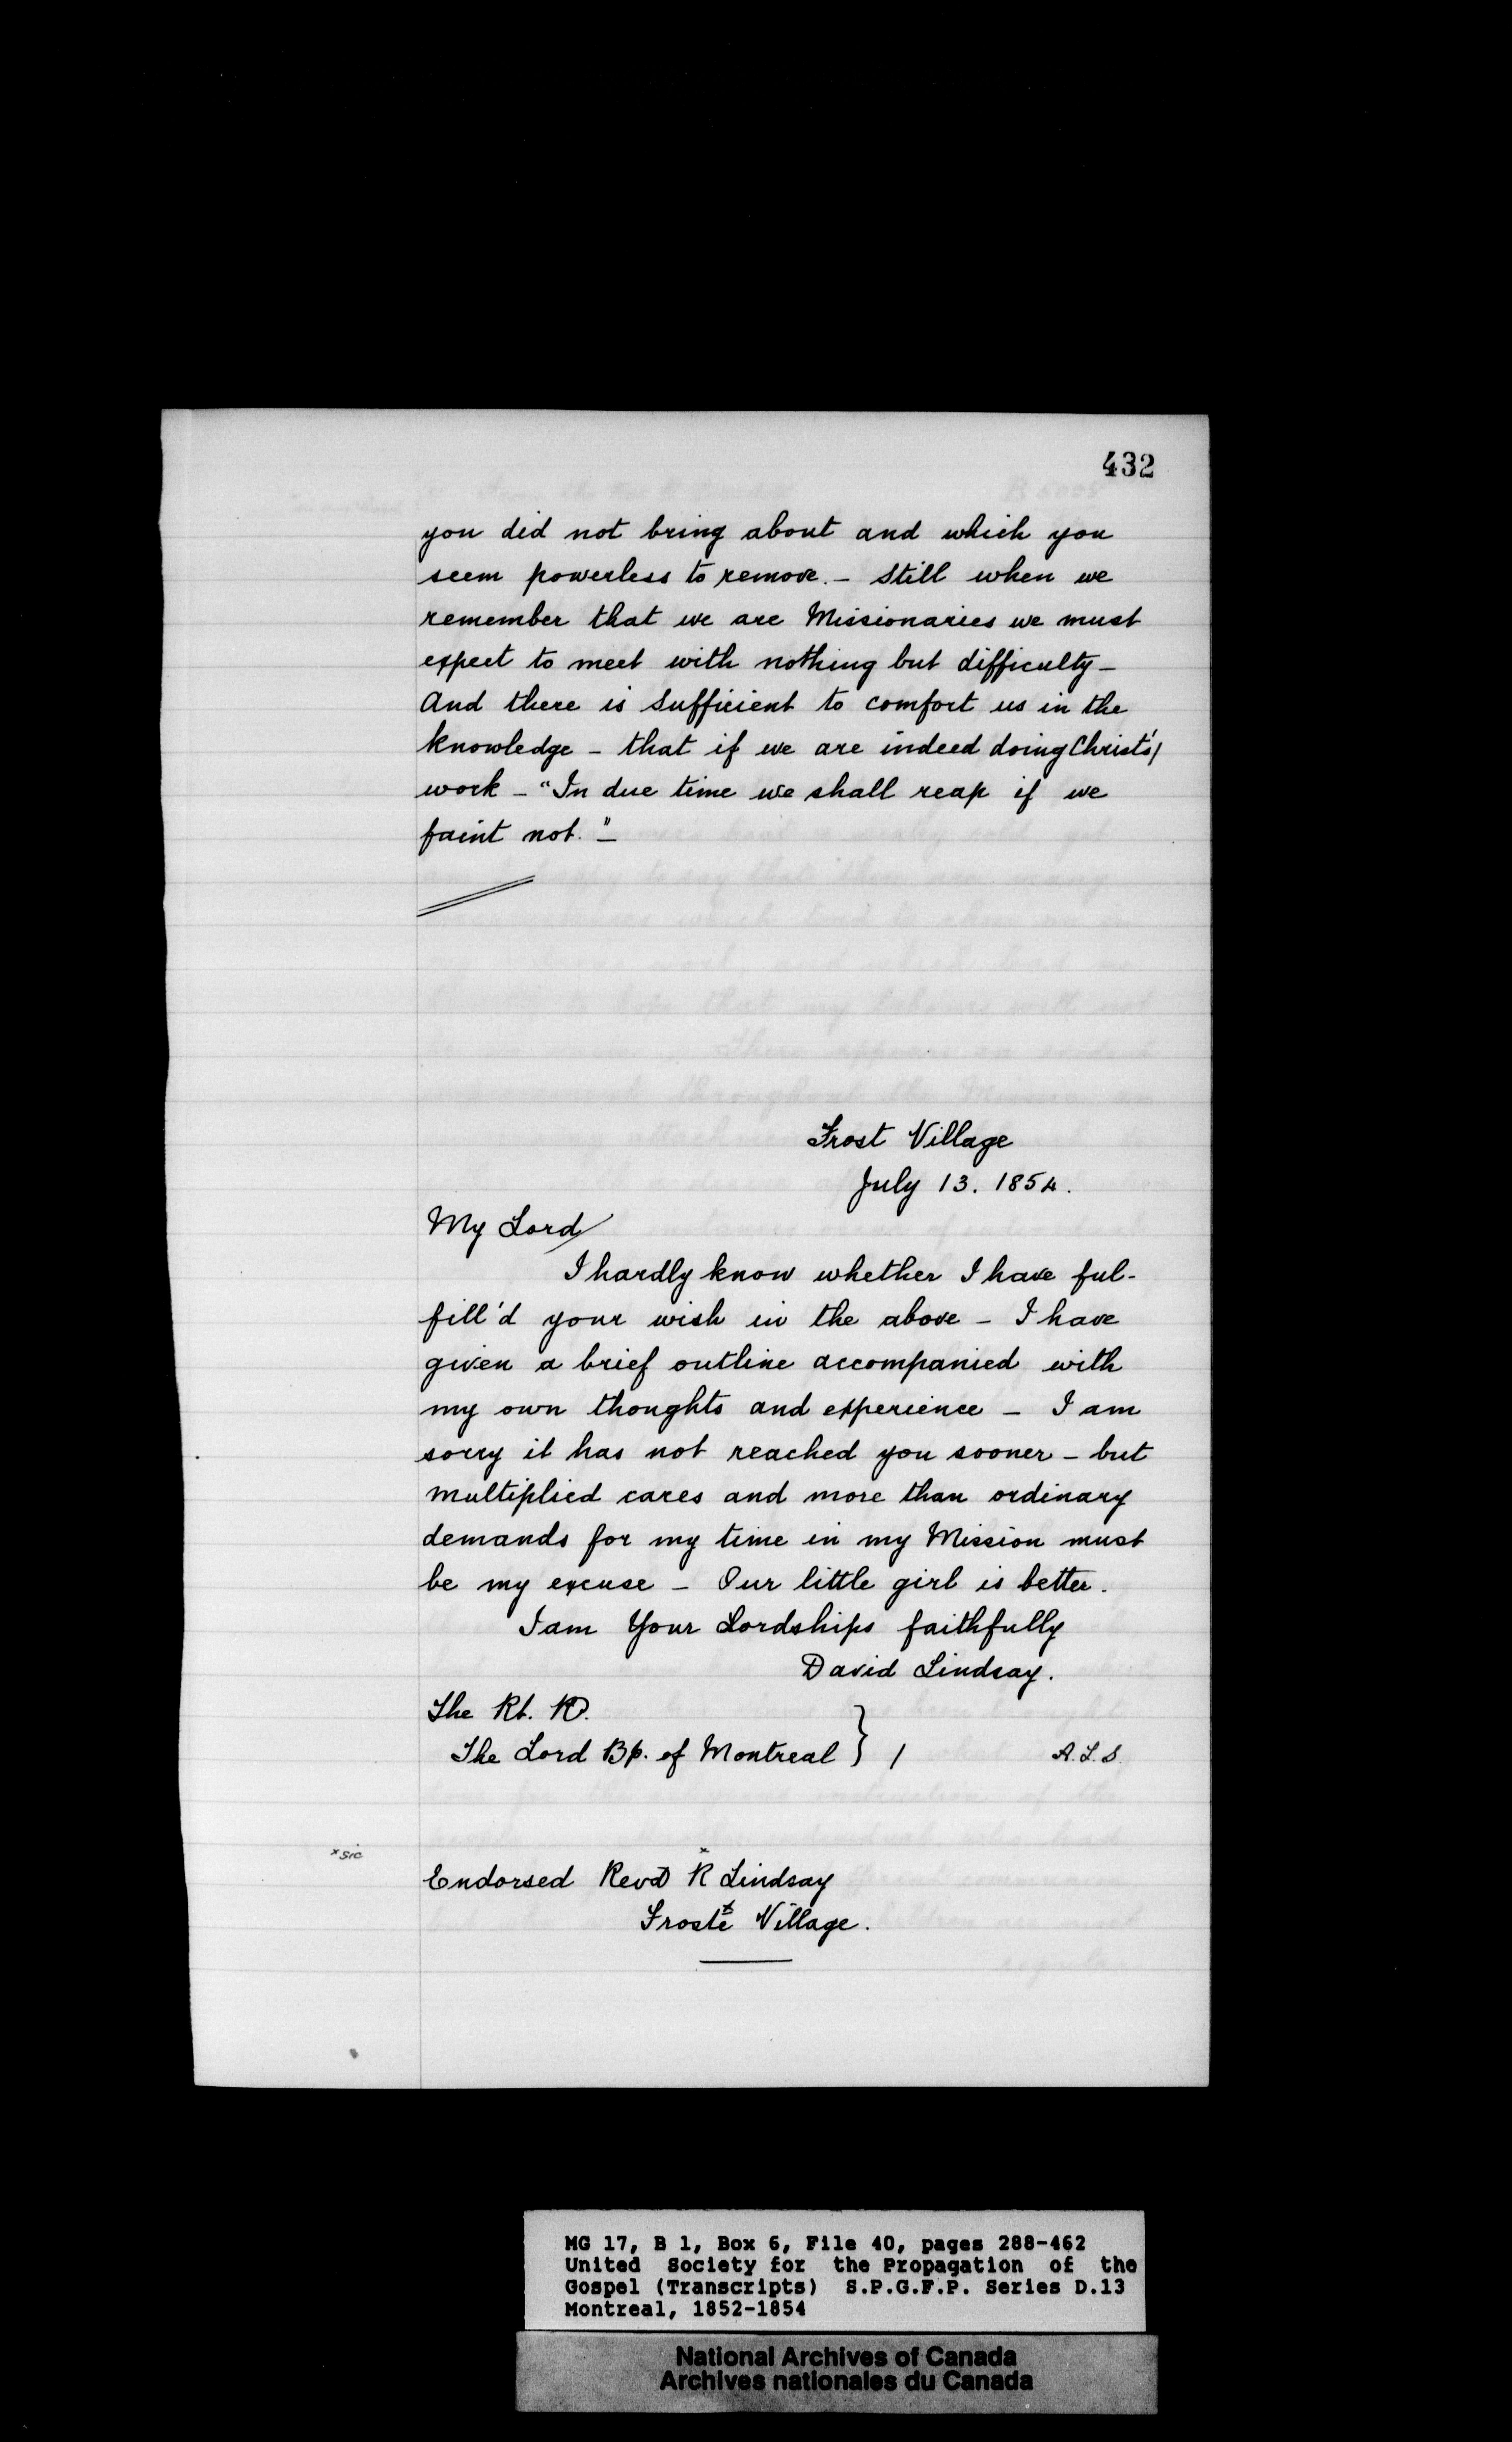 432
you did not bring about and which you
seem powerless to remove. – Still when we
remember that we are Missionaries we must
expect to meet with nothing but difficulty –
And there is sufficient to comfort us in the
knowledge – that if we are indeed doing Christ's/
work – "In due time we shall reap if we
faint not." –
Frost Village
July 13. 1854.
My Lord/
I hardly know whether I have ful-
fill'd your wish in the above – I have
given a brief outline accompanied with
my own thoughts and experience – I am
sorry it has not reached you sooner – but
multiplied cares and more than ordinary
demands for my time in my Mission must
be my excuse – Our little girl is better.
I am Your Lordships faithfully
David Lindsay.
The Rt. RD.
The Lord Bp. of Montreal } / A.L.S.
x sic
Endorsed Revd R x Lindsay
Froste x Village.
MG 17, B 1, Box 6, File 40, pages 288-462
United Society for the Propagation of the
Gospel (Transcripts) S.P.G.F.P. Series D.13
Montreal, 1852-1854
National Archives of Canada
Archives nationales du Canada